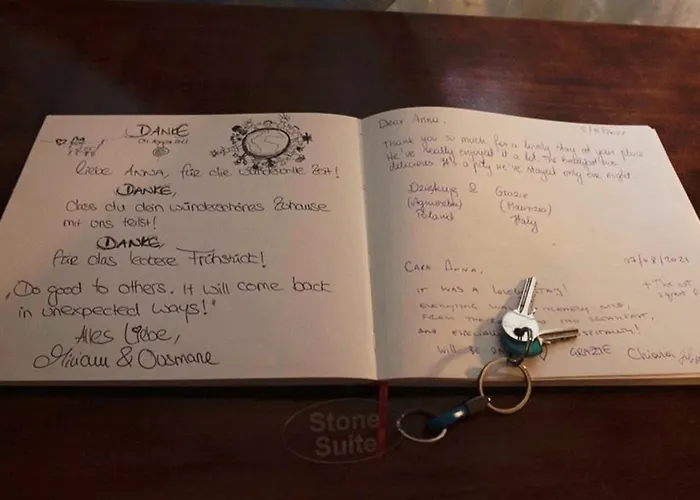 DANKE
August 2021
liebe ANNA, für die wundervolle Zeit!
DANKE,
dass du dein wunderschönes Zuhause
mit uns teilst!
DANKE
für das leckere Frühstück!
„Do good to others. It will come back
in unexpected ways!"
Alles Liebe,
Miriam & Ousmane
Dear Anna,
Thank you so much for a lovely stay at your place
We've really enjoyed it a lot. The breakfast was
delicious. It's a pity we've stayed only one night.
Dziękuję & Grazie
(Agnieszka) (Maurizio)
Poland Italy
CARA ANNA, 07/08/2021
IT WAS A LOVELY STAY!
EVERYTHING
FROM THE TO THE BREAKFAST,
AND
WILL BE GRAZIE Chiara
Stone
Suite